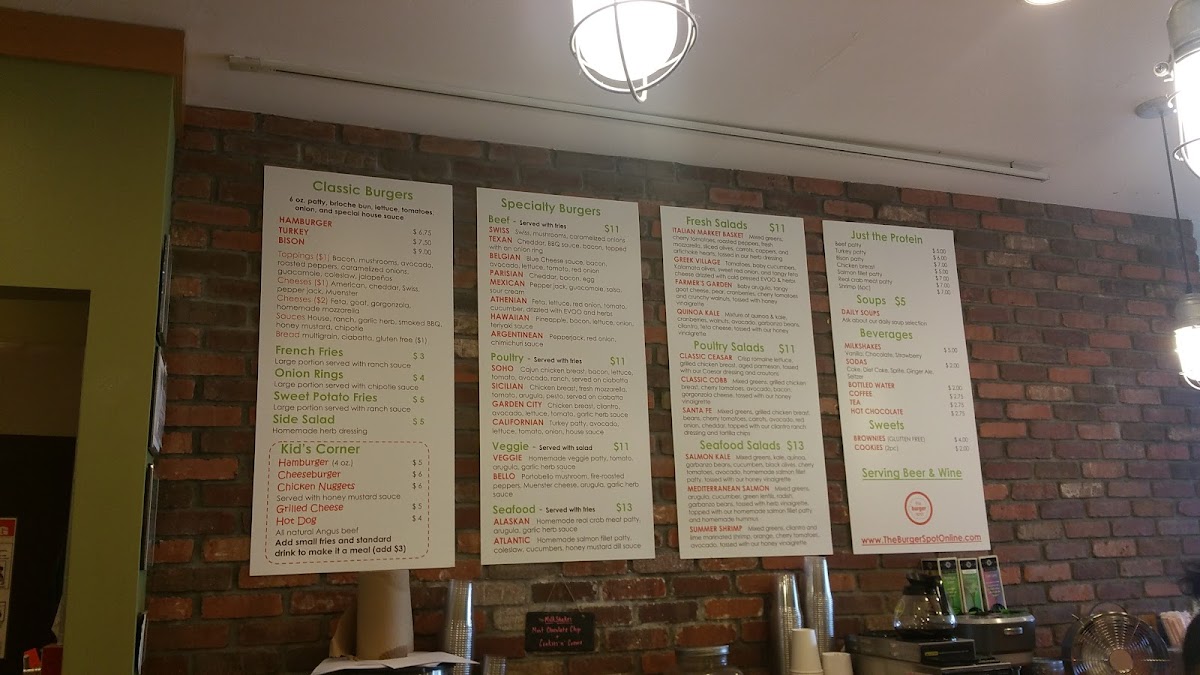 Classic Burgers
6 oz. patty, brioche bun, lettuce, tomatoes
onion, and special house sauce
HAMBURGER $ 6.75
TURKEY $ 7.50
BISON $ 9.00
Toppings ($1) Bacon, mushrooms, avocado,
roasted peppers, caramelized onions,
guacamole, coleslaw, jalapeños
Cheeses ($1) American, cheddar, Swiss,
pepper jack, Muenster
Cheeses ($2) Feta, goat, gorgonzola,
homemade mozzarella
Sauces House, ranch, garlic herb, smoked BBQ,
honey mustard, chipotle
Bread multigrain, ciabatta, gluten free ($1)
French Fries $ 3
Large portion served with ranch sauce
Onion Rings $ 4
Large portion served with chipotle sauce
Sweet Potato Fries $ 5
Large portion served with ranch sauce
Side Salad $ 5
Homemade herb dressing
Kid's Corner
Hamburger (4 oz.) $ 5
Cheeseburger $ 6
Chicken Nuggets $ 6
Served with honey mustard sauce
Grilled Cheese $ 5
Hot Dog $ 4
All natural Angus beef
Add small fries and standard
drink to make it a meal (add $3)
Specialty Burgers
Beef - Served with fries $11
SWISS Swiss, mushrooms, caramelized onions
TEXAN Cheddar, BBQ sauce, bacon, topped
with an onion ring
BELGIAN Blue Cheese sauce, bacon,
avocado, lettuce, tomato, red onion
PARISIAN Cheddar, bacon, egg
MEXICAN Pepper jack, guacamole, salsa,
sour cream
ATHENIAN Feta, lettuce, red onion, tomato,
cucumber, drizzled with EVOO and herbs
HAWAIIAN Pineapple, bacon, lettuce, onion,
teriyaki sauce
ARGENTINEAN Pepperjack, red onion,
chimichuri sauce
Poultry - Served with fries $11
SOHO Cajun chicken breast, bacon, lettuce,
tomato, avocado, ranch, served on ciabatta
SICILIAN Chicken breast, fresh mozzarella,
tomato, arugula, pesto, served on ciabatta
GARDEN CITY Chicken breast, cilantro,
avocado, lettuce, tomato, garlic herb sauce
CALIFORNIAN Turkey patty, avocado,
lettuce, tomato, onion, house sauce
Veggie - Served with salad $11
VEGGIE Homemade veggie patty, tomato,
arugula, garlic herb sauce
BELLO Portobello mushroom, fire-roasted
peppers, Muenster cheese, arugula, garlic herb
sauce
Seafood - Served with fries $13
ALASKAN Homemade real crab meat patty,
arugula, garlic herb sauce
ATLANTIC Homemade salmon fillet patty,
coleslaw, cucumbers, honey mustard dill sauce
Fresh Salads $11
ITALIAN MARKET BASKET Mixed greens,
cherry tomatoes, roasted peppers, fresh
mozzarella, sliced olives, carrots, peppers, and
artichoke hearts, tossed in our herb dressing
GREEK VILLAGE Tomatoes, baby cucumbers,
Kalamata olives, sweet red onion, and tangy feta
cheese drizzled with cold pressed EVOO & herbs
FARMER'S GARDEN Baby arugula, tangy
goat cheese, pear, cranberries, cherry tomatoes
and crunchy walnuts, tossed with honey
vinaigrette
QUINOA KALE Mixture of quinoa & kale,
cranberries, walnuts, avocado, garbanzo beans,
cilantro, feta cheese, tossed with our honey
vinaigrette
Poultry Salads $11
CLASSIC CEASAR Crisp romaine lettuce,
grilled chicken breast, aged parmesan, tossed
with our Caesar dressing and croutons
CLASSIC COBB Mixed greens, grilled chicken
breast, cherry tomatoes, avocado, bacon,
gorgonzola cheese, tossed with our honey
vinaigrette
SANTA FE Mixed greens, grilled chicken breast
beans, cherry tomatoes, carots, avocado, red
onion, cheddar, tapped with our cilantro ranch
dressing and tortilla chips
Seafood Salads $13
SALMON KALE Mixed greens, kale, quinoa,
garbanzo beans, cucumbers, black olives, cherry
tomatoes, avocado, homemade salmon fillet
patty, tossed with our honey vinaigrette
MEDITERRANEAN SALMON Mixed greens,
arugula, cucumber, green lentils, radish,
garbanzo beans, tossed with herb vinaigrette,
tapped with our homemade salmon fillet patty
and homemade hummus
SUMMER SHRIMP Mixed greens, cilantro and
lime marinated shrimp, orange, cherry tomatoes,
avocado, tossed with our honey vinaigrette
Just the Protein
Beef patty $ 5.00
Turkey patty $ 6.00
Bison patty $ 7.00
Chicken breast $ 5.00
Salmon fillet patty $ 7.00
Real crab meat patty $ 7.00
Shrimp (6pc) $ 7.00
Soups $5
DAILY SOUPS
Ask about our daily soup selection
Beverages
MILKSHAKES $ 5.00
Vanilla, Chocolate, Strawberry
SODAS $ 2.00
Coke, Diet Coke, Sprite, Ginger Ale,
Seltzer
BOTTLED WATER $ 2.00
COFFEE $ 2.75
TEA $ 2.75
HOT CHOCOLATE $ 2.75
Sweets
BROWNIES (GLUTEN FREE) $ 4.00
COOKIES (2pc) $ 2.00
Serving Beer & Wine
the
burger
spot
www.TheBurgerSpotOnline.com
Milk Shakes
Mint Chocolate Chip
Cookies n' Cream